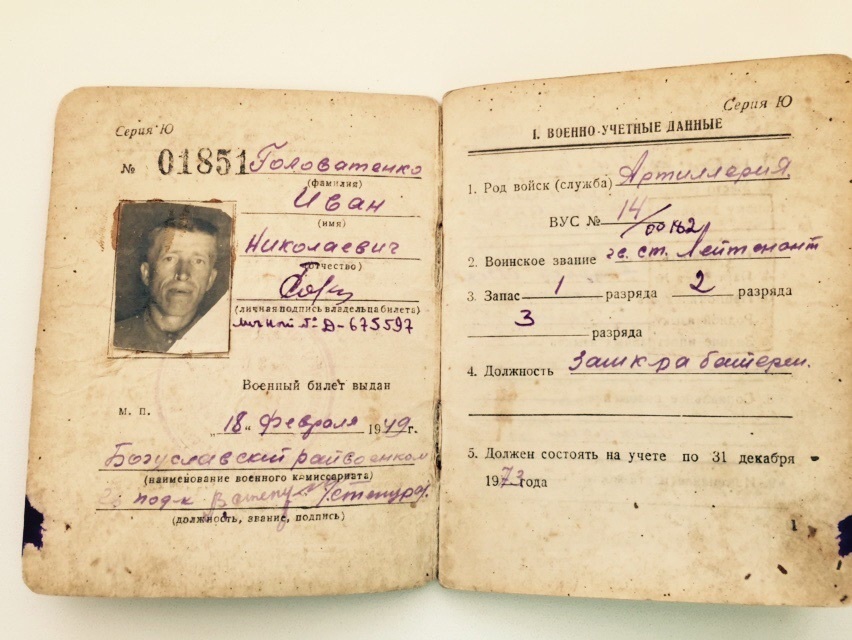 Серия Ю
№ 01851 Головатенко
(фамилия)
Иван
(имя)
Николаевич
(отчество)
(личная подпись владельца билета)
личный № Д-675597
Военный билет выдан
М. П.
„18“ февраля 1949 г.
Богуславский райвоенком
(наименование военного комиссариата)
(должность, звание, подпись)
Серия Ю
I. ВОЕННО-УЧЕТНЫЕ ДАННЫЕ
1. Род войск (служба) Артиллерия.
ВУС № 14/00182
2. Воинское звание гв. ст. Лейтенант
3. Запас 1 разряда 2 разряда
3 разряда
4. Должность батареи.
5. Должен состоять на учете по 31 декабря
1973 года
1